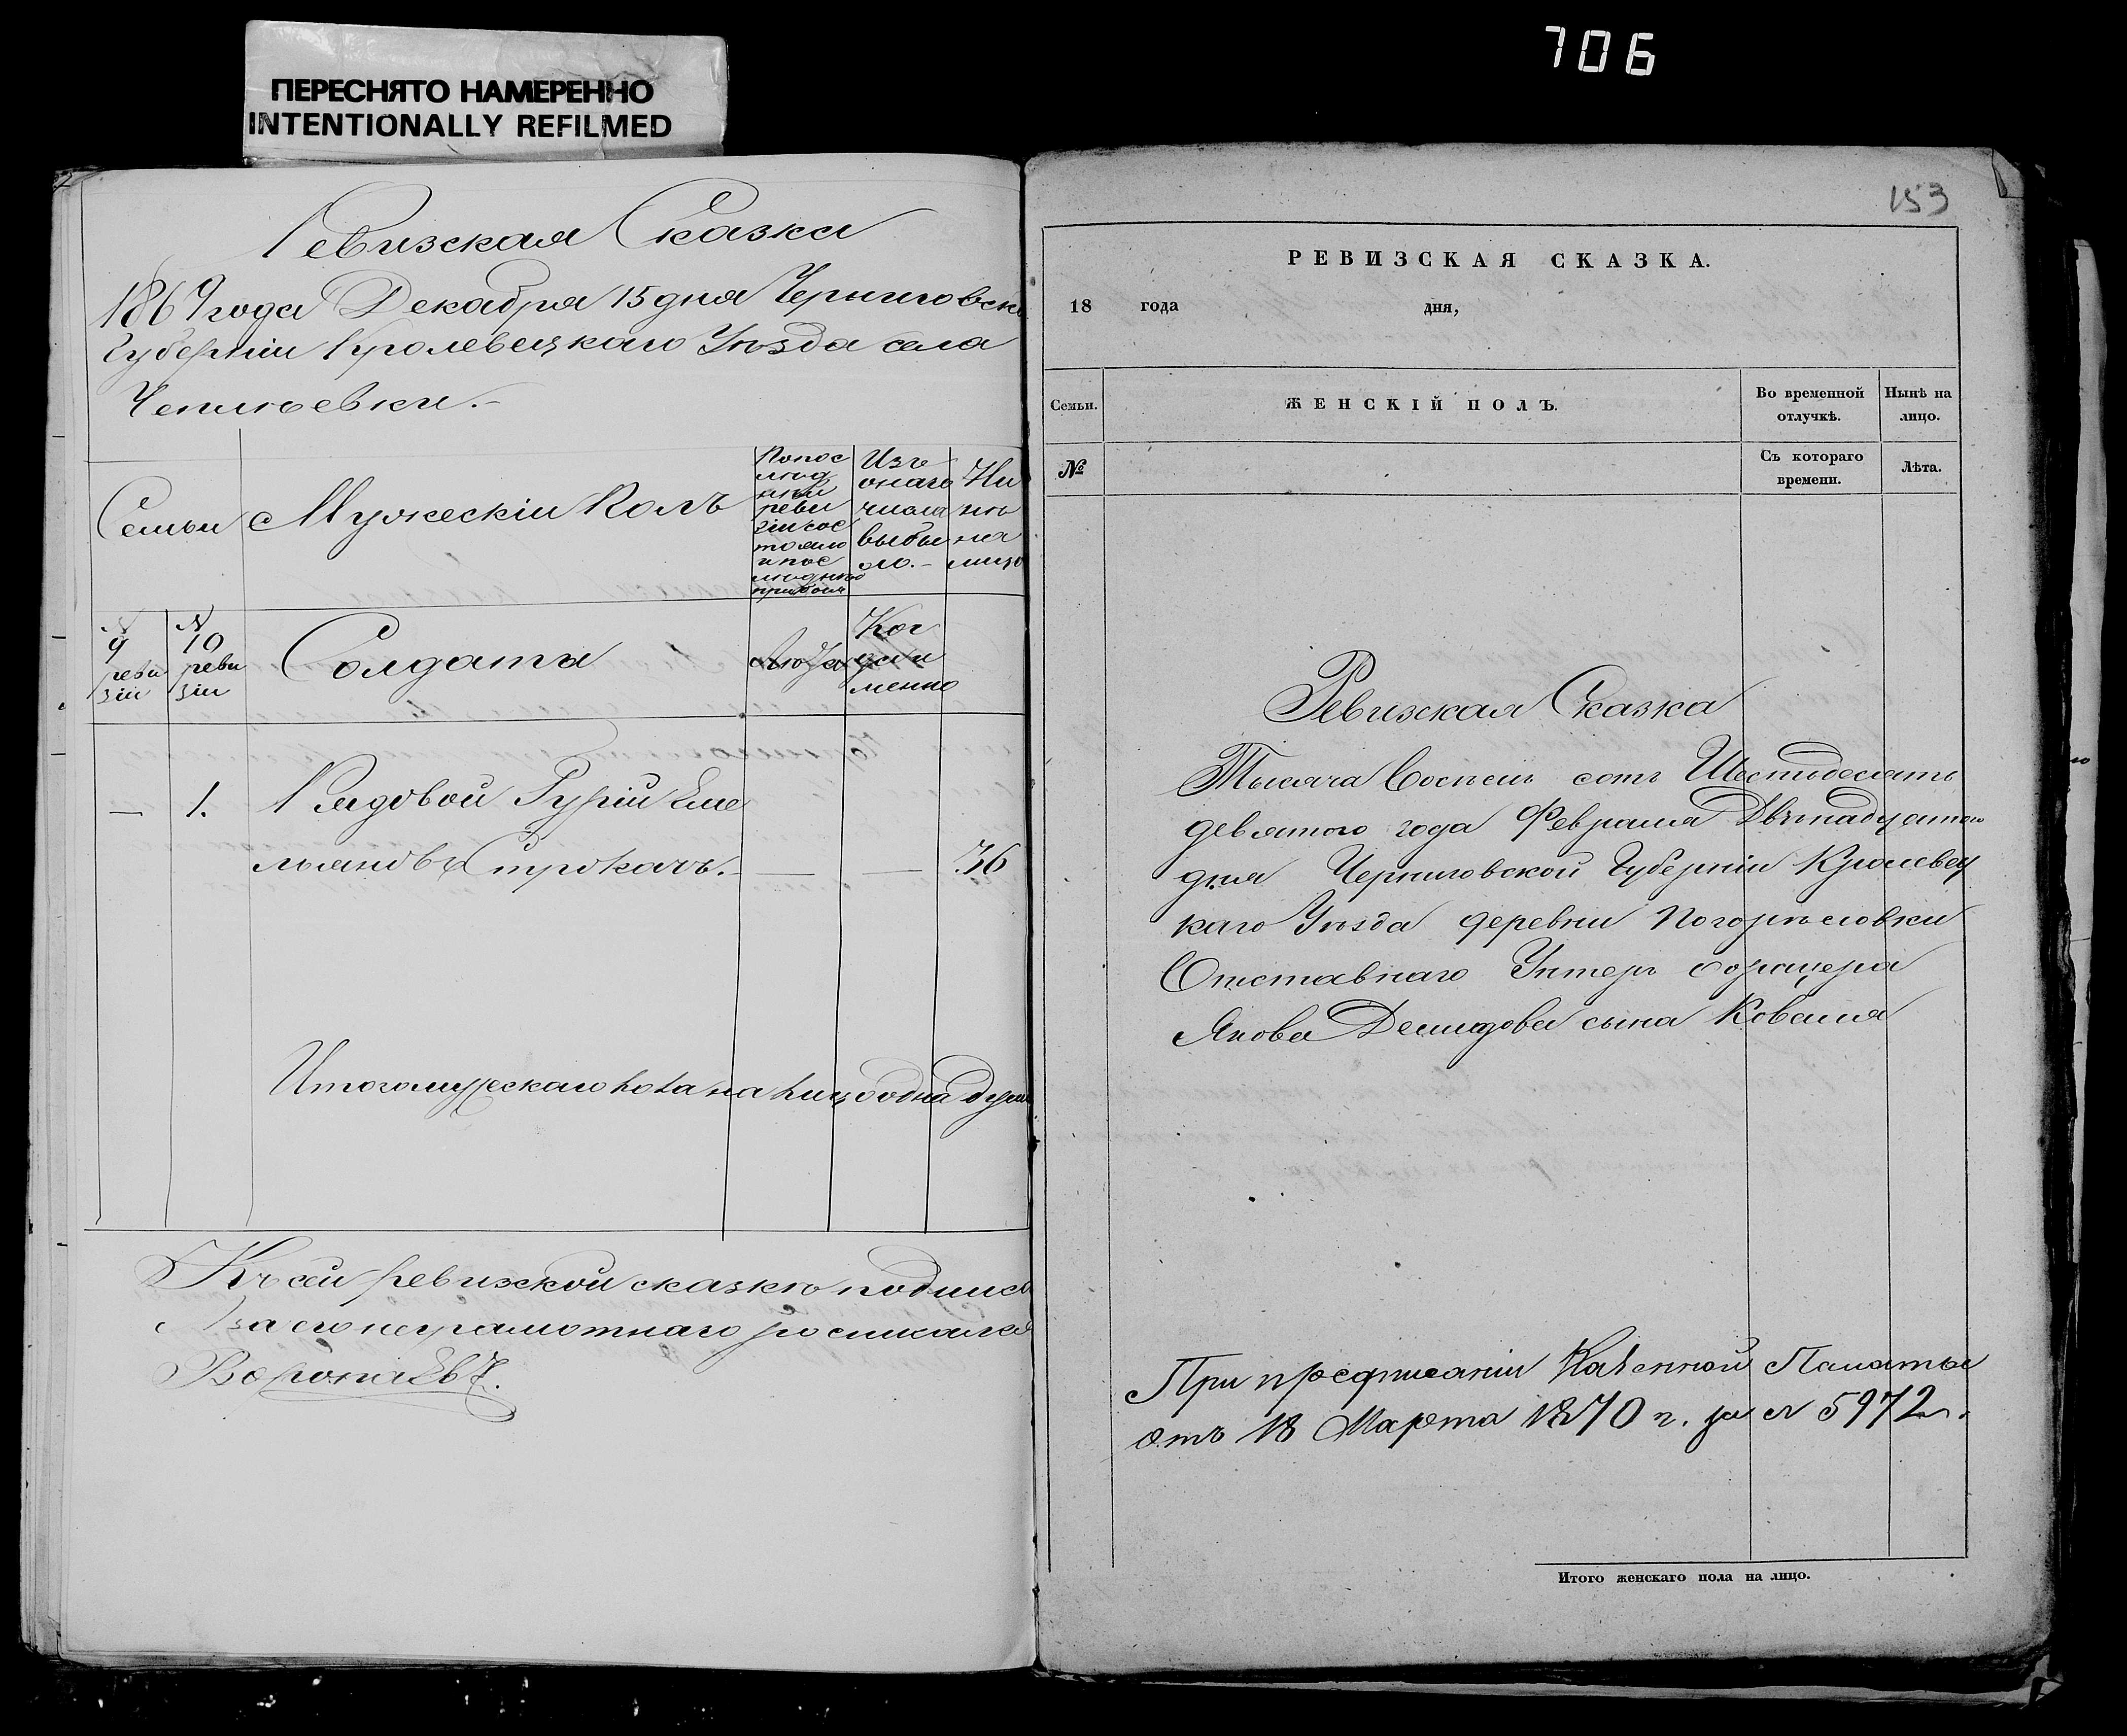 706
ПЕРЕСНЯТО НАМЕРЕННО
INTENTIONALLY REFILMED
Ревизская Сказка
1869 года Декабря 15 дня Черниговск
Губерніи Кролевецкаго Уѣзда села
Чепліевки.-
Семьи
Мужескій Полъ
Попос
лѣд
ней
реви
зіи сос
тояло
и пос
лѣ оной
прибыло
Изъ
онаго
числа
выбы
ло.-
Ны
нѣ
на
лицо
№ 9 реви зіи
№ 10 реви зіи
Солдата
Лѣта
Ког
да и
менно
— 1. Рядовой Гурій Еме
льяновъ Строкачъ. — — 36
Итого мужескаго пола на лицо одна душа
Къ сей ревизской сказкѣ подписа
за его неграмотнаго росписался
153
РЕВИЗСКАЯ СКАЗКА.
18 года дня,
Семьи.
ЖЕНСКІЙ ПОЛЪ.
Во временной
отлучкѣ.
Нынѣ на
лицо.
№
Съ котораго
времени.
Лѣта.
Ревизская Сказка
Тысяча Восемь сотъ Шестьдесятъ
девятого года Февраля Двѣнадцатаго
дня Черниговской Губерніи Кролевец
каго Уѣзда деревни Погорѣловки
Отставнаго Унтеръ офицера
Якова Демидова сына Коваля
При предписаніи Казенной Палаты
отъ 18 Марта 1870 г. за № 5972.
Итого женскаго пола на лицо.